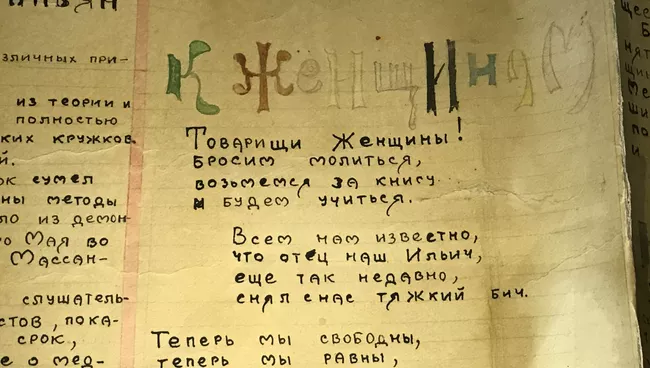 зличных при-
из теории и
полностью
ких кружков.
й.
ок сумел
ны методы
ло из демон-
го Мая во
Массан-
слушатель-
стов, пока-
срок,
е о мед-
К ЖЕНЩИНАМ
Товарищи Женщины!
бросим молиться,
возьмемся за книгу
и будем учиться.
Всем нам известно,
что отец наш Ильич,
еще так недавно,
снял снас тяжкий бич.
Теперь мы свободны,
теперь мы равны,